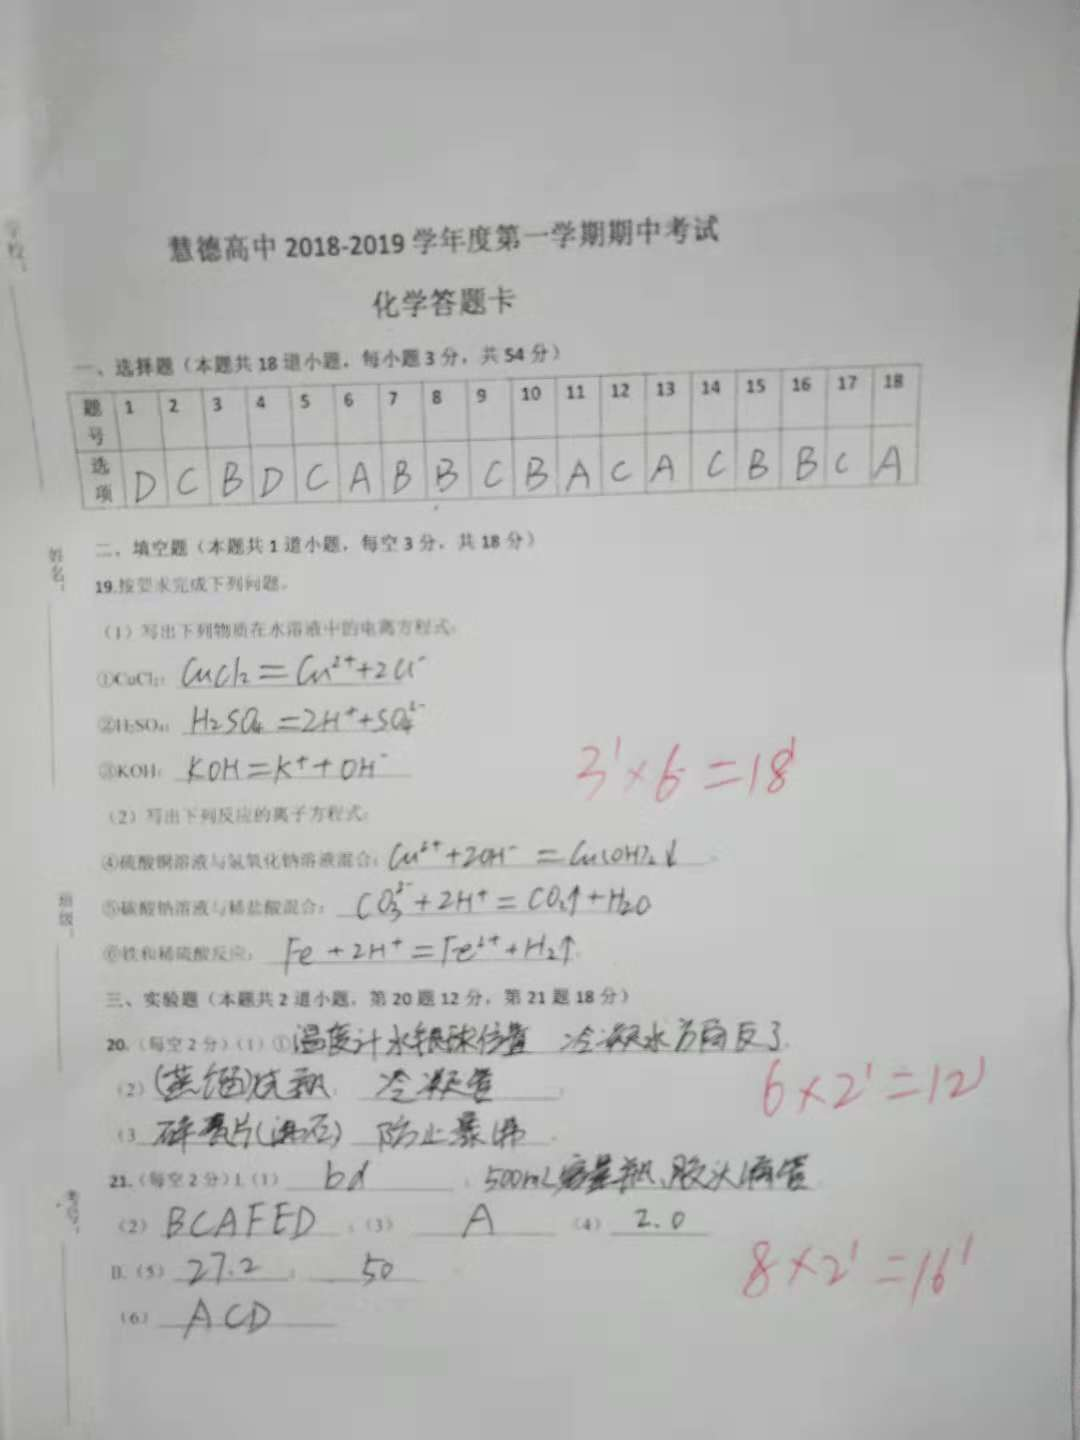 学校：
慧德高中 2018-2019 学年度第一学期期中考试
化学答题卡
一、选择题（本题共 18 道小题，每小题 3 分，共 54 分）
题号 1 2 3 4 5 6 7 8 9 10 11 12 13 14 15 16 17 18
选项 D C B D C A B B C B A C A C B B C A
二、填空题（本题共 1 道小题，每空 3 分，共 18 分）
姓名：
19.按要求完成下列问题。
（1）写出下列物质在水溶液中的电离方程式：
①CuCl₂： CuCl₂=Cu²⁺+2Cl⁻
②H₂SO₄： H₂SO₄=2H⁺+SO₄²⁻
③KOH： KOH=K⁺+OH⁻
3'×6=18'
（2）写出下列反应的离子方程式：
④硫酸铜溶液与氢氧化钠溶液混合： Cu²⁺+2OH⁻=Cu(OH)₂↓
班级：
⑤碳酸钠溶液与稀盐酸混合： CO₃²⁻+2H⁺=CO₂↑+H₂O
⑥铁和稀硫酸反应： Fe+2H⁺=Fe²⁺+H₂↑
三、实验题（本题共 2 道小题，第 20 题 12 分，第 21 题 18 分）
20.（每空 2 分）（1）①温度计水银球位置 冷凝水方向反了
（2）(蒸馏)烧瓶 冷凝管
6×2'=12'
（3 碎瓷片(沸石) 防止暴沸
21.（每空 2 分）I.（1） bd ； 500mL容量瓶、胶头滴管
考号：
（2） BCAFED ；（3） A （4） 2.0
II.（5） 27.2 ； 50
8×2'=16'
（6） ACD